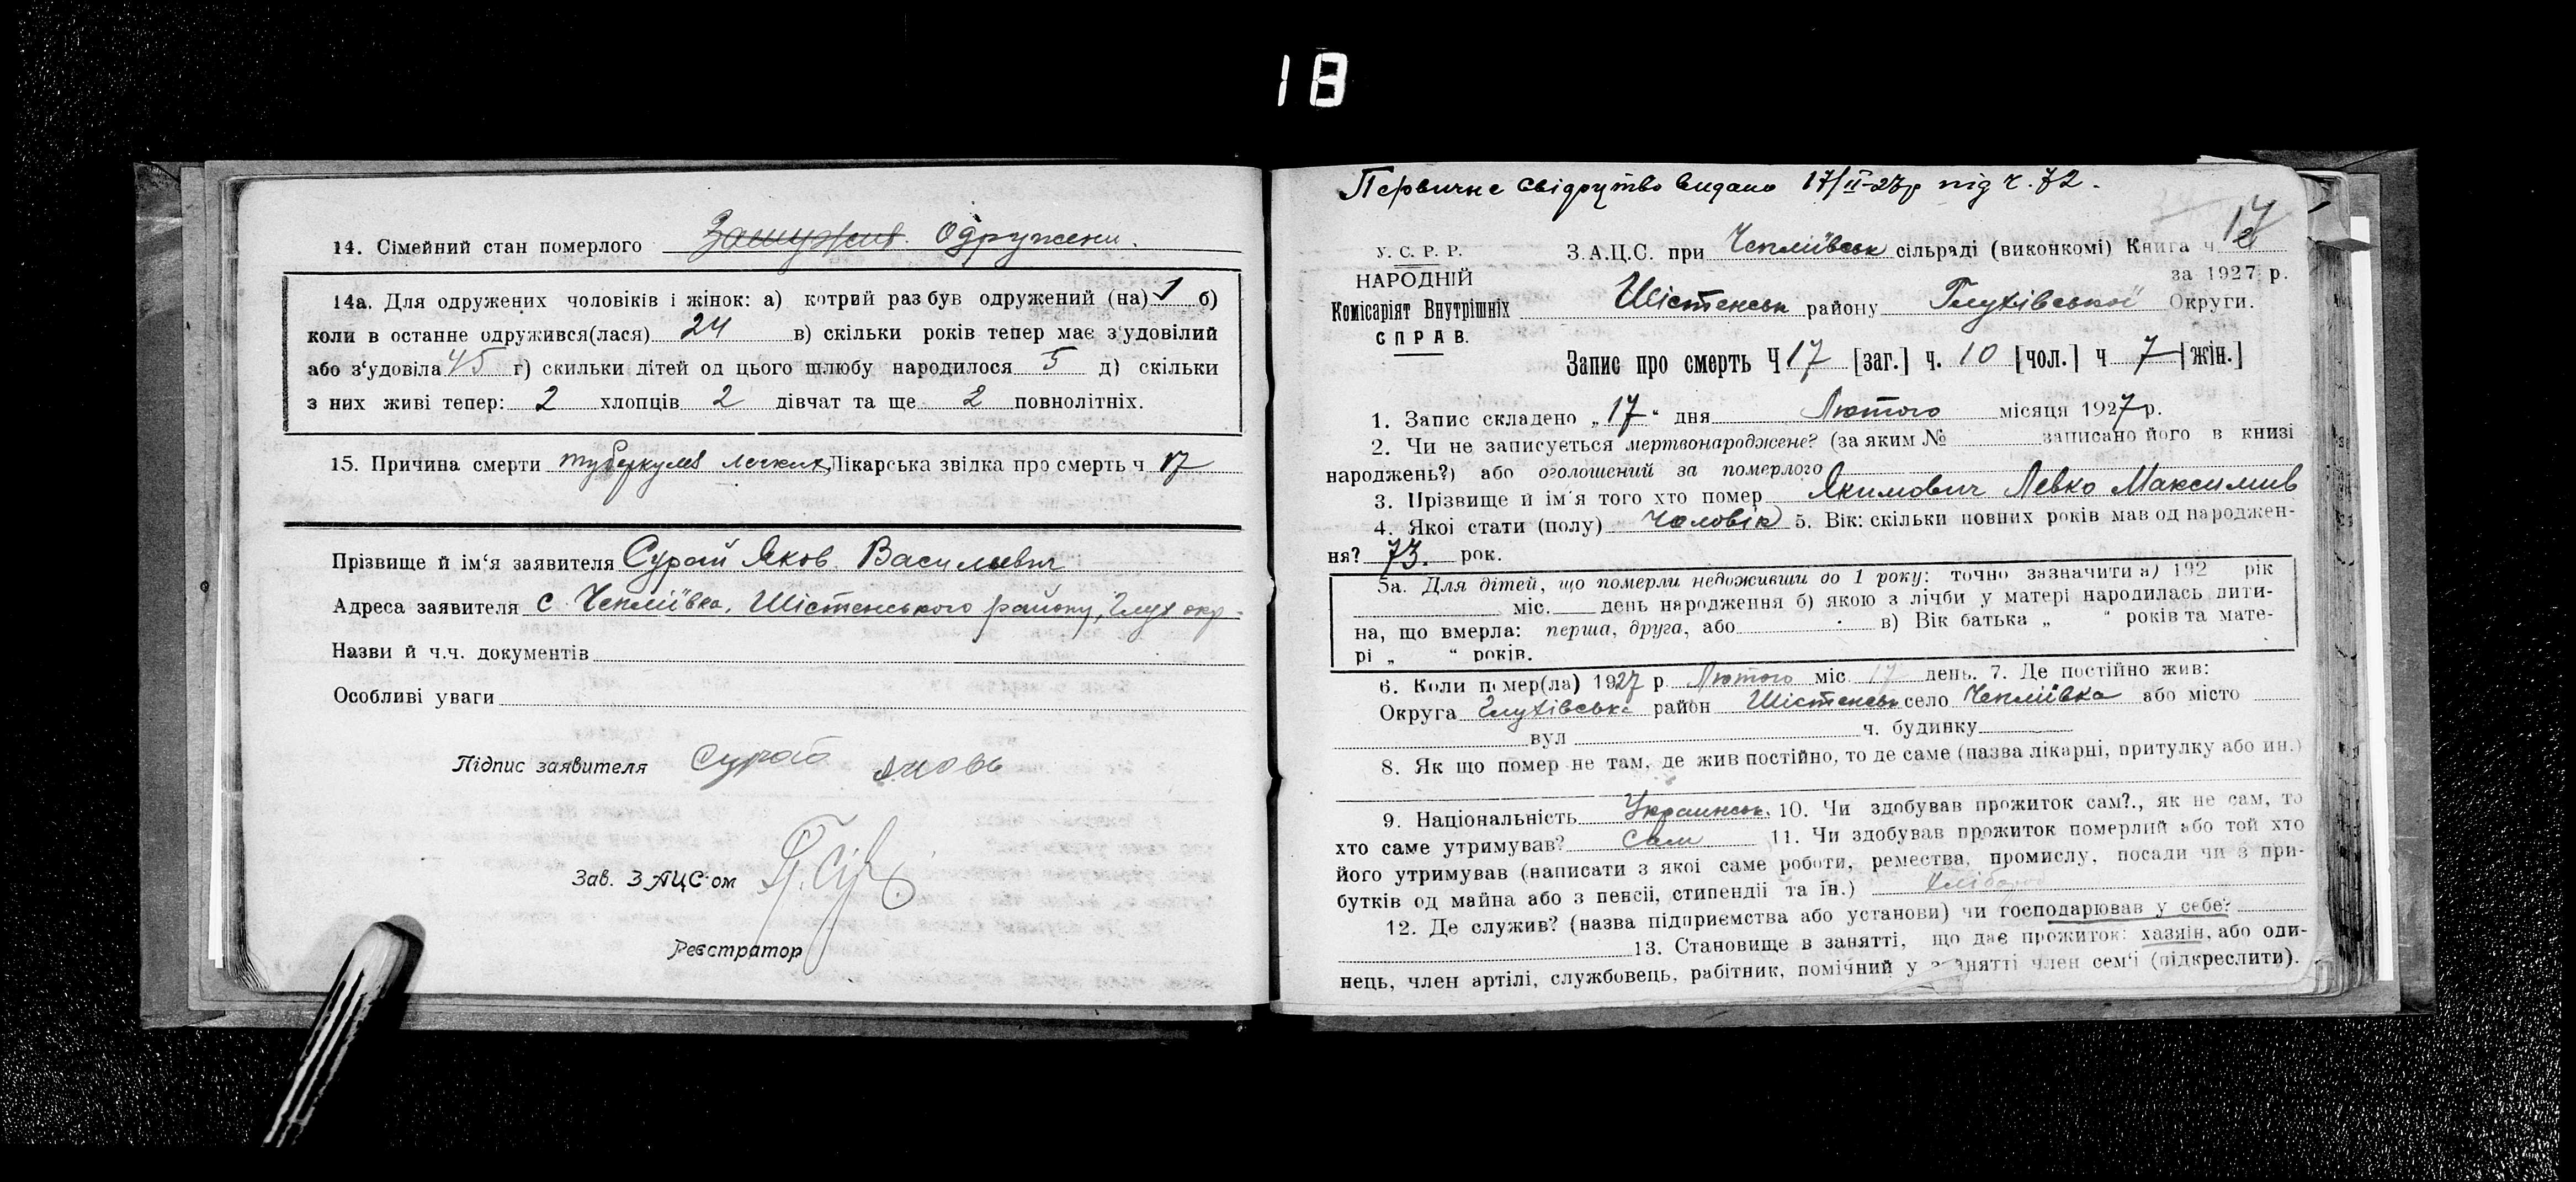 18
14. Сімейний стан померлого Замужня. Одружени.
14а. Для одружених чоловіків і жінок: а) котрий раз був одружений (на) 1 б)
коли в останнє одружився(лася) 24 в) скільки років тепер має з'удовілий
або з'удовіла 45 г) скильки дітей од цього шлюбу народилося 5 д) скільки
з них живі тепер: 2 хлопців 2 дівчат та ще 2 повнолітніх.
15. Причина смерти туберкулез легких Лікарська звідка про смерть ч 17
Прізвище й ім'я заявителя Сурай Яков Васильевич
Адреса заявителя с Чепліївка, Шістенського району, Глух окр.
Назви й ч.ч. документів
Особливі уваги
Підпис заявителя Сурай Яковъ
Зав. ЗАЦС'ом
Реєстратор
Первичне свідоцтво видано 17/II-27р під ч. 72.
17
У. С. Р. Р.
НАРОДНІЙ
Комісаріят Внутрішніх
СПРАВ.
З.А.Ц.С. при Чепліївськ сільраді (виконкомі) Книга ч
за 1927 р.
Шістенськ району Глухівської Округи.
Запис про смерть Ч 17 [заг.] ч. 10 [чол.] ч 7 [жін.]
1. Запис складено „17" дня Лютого місяця 1927 р.
2. Чи не записується мертвонароджене? (за яким № записано його в книзі
народжень?) або оголошений за померлого
3. Прізвище й ім'я того хто помер Якимович Левко Максимив
4. Якої стати (полу) Чоловік 5. Вік: скільки повних років мав од народжен-
ня? 73. рок.
5а. Для дітей, що померли недоживши до 1 року: точно зазначити а) 192 рік
міс. день народження б) якою з лічби у матері народилась дити-
на, що вмерла: перша, друга, або в) Вік батька „ " років та мате-
рі „ " років.
6. Коли помер(ла) 1927 р Лютого міс 17 день. 7. Де постійно жив:
Округа Глухівська район Шістенськ село Чепліївка або місто
вул ч. будинку
8. Як що помер не там, де жив постійно, то де саме (назва лікарні, притулку або ин.)
9. Національність Украинськ. 10. Чи здобував прожиток сам?., як не сам, то
хто саме утримував? Сам 11. Чи здобував прожиток померлий або той хто
його утримував (написати з якої саме роботи, ремества, промислу, посади чи з при-
бутків од майна або з пенсії, стипендії та ін.) хлібороб
12. Де служив? (назва підприємства або установи) чи господарював у себе?
13. Становище в занятті, що дає прожиток: хазяїн, або оди-
нець, член артілі, службовець, рабітник, помічний у занятті член сем'ї (підкреслити).